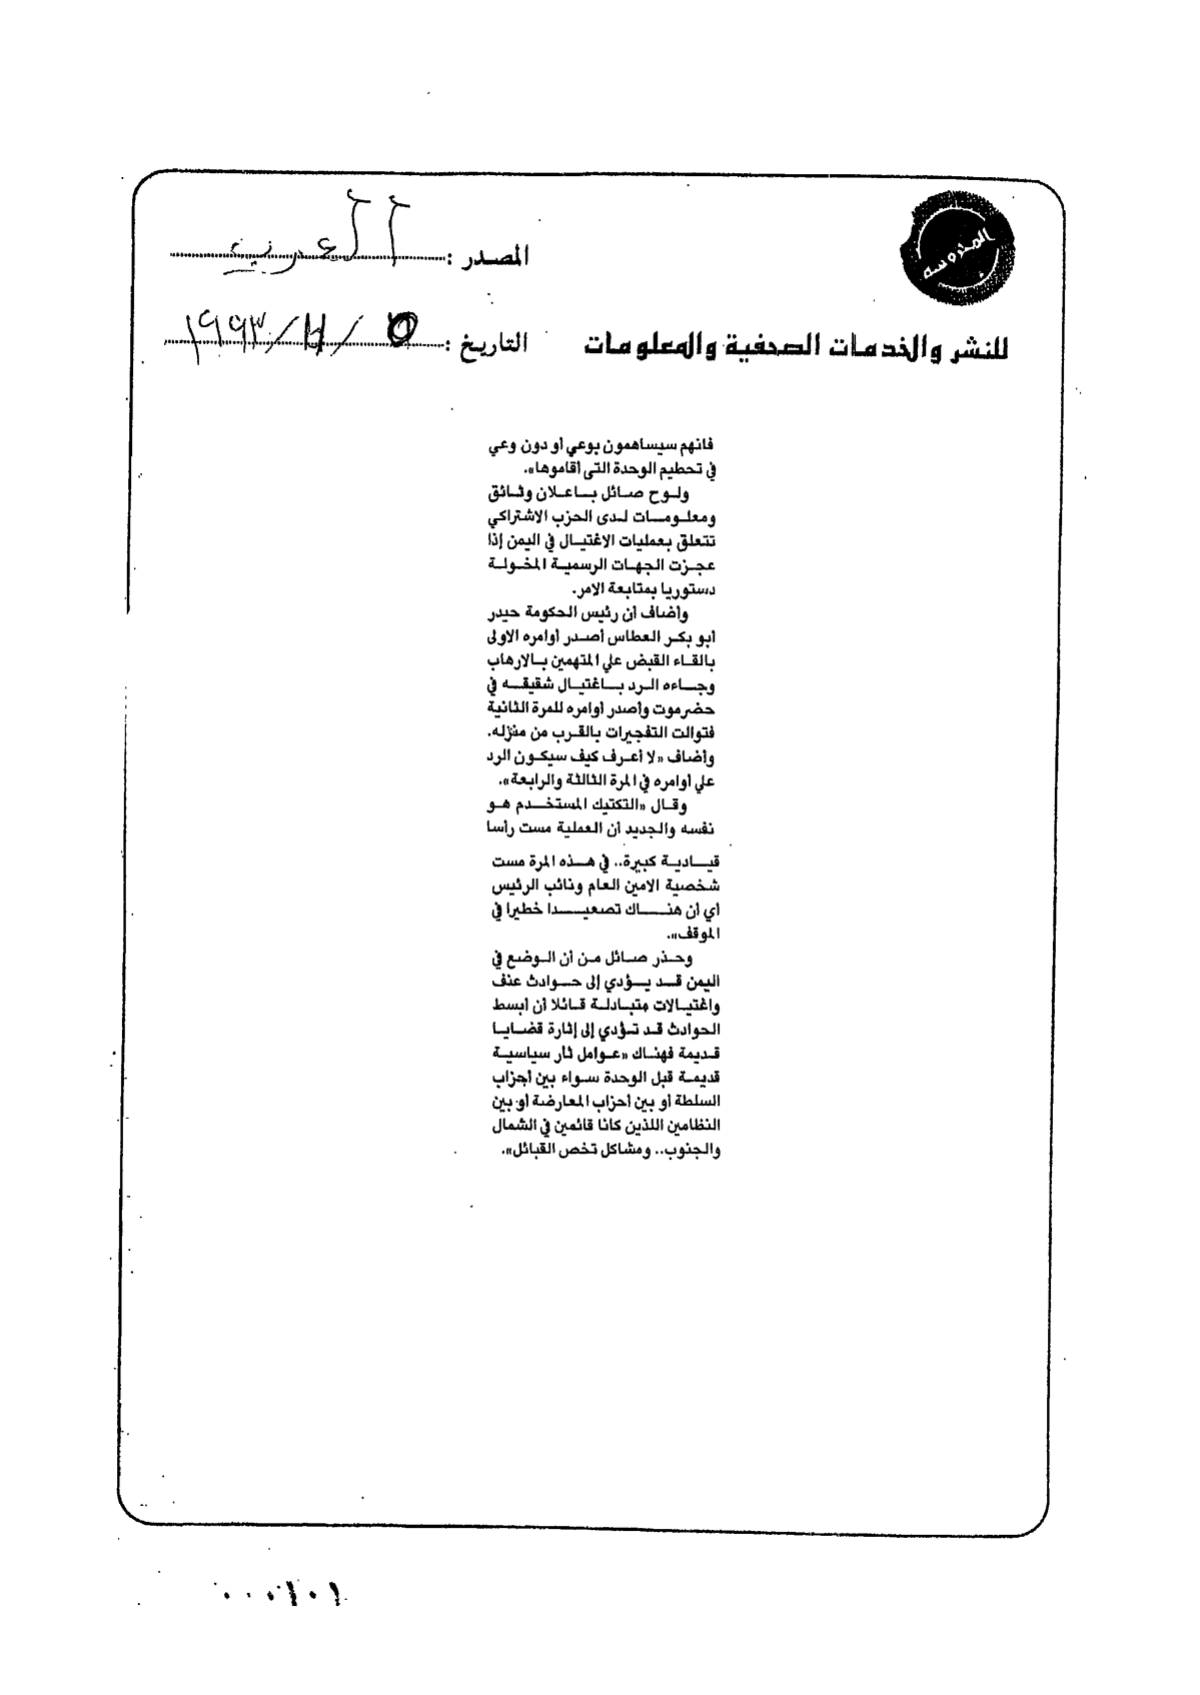 المحروسه
المصدر : العرب
للنشر والخدمات الصحفية والمعلومات
التاريخ : ٥ / ١١ / ١٩٩٣
فانهم سيساهمون بوعي أو دون وعي
في تحطيم الوحدة التى أقاموها».
ولوح صائل باعلان وثائق
ومعلومات لدى الحزب الاشتراكي
تتعلق بعمليات الاغتيال في اليمن إذا
عجزت الجهات الرسمية المخولة
دستوريا بمتابعة الامر.
وأضاف أن رئيس الحكومة حيدر
أبو بكر العطاس أصدر أوامره الاولى
بالقاء القبض علي المتهمين بالارهاب
وجاءه الرد باغتيال شقيقه في
حضرموت وأصدر أوامره للمرة الثانية
فتوالت التفجيرات بالقرب من منزله.
وأضاف «لا أعرف كيف سيكون الرد
علي أوامره في المرة الثالثة والرابعة».
وقال «التكتيك المستخدم هو
نفسه والجديد أن العملية مست رأسا
قيادية كبيرة.. في هذه المرة مست
شخصية الامين العام ونائب الرئيس
أي أن هناك تصعيدا خطيرا في
الموقف».
وحذر صائل من أن الوضع في
اليمن قد يؤدي إلى حوادث عنف
واغتيالات متبادلة قائلا أن أبسط
الحوادث قد تؤدي إلى إثارة قضايا
قديمة فهناك «عوامل ثار سياسية
قديمة قبل الوحدة سواء بين أحزاب
السلطة أو بين أحزاب المعارضة أو بين
النظامين اللذين كانا قائمين في الشمال
والجنوب.. ومشاكل تخص القبائل».